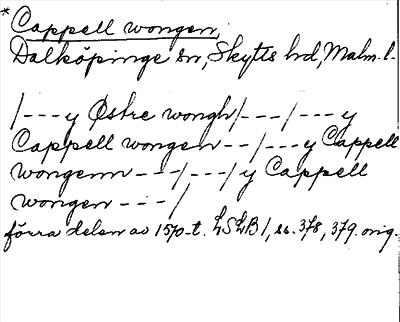 *Cappell wongen,
Dalköpinge sn, Skytts hd, Malm. l.
/---y Østre wongh/---/---y
Cappell wongen--/---y Cappell
wongenn---/---/y Cappell
wongen---/
förra delen av 1570-t. LSLB 1, ss. 378, 379. orig.